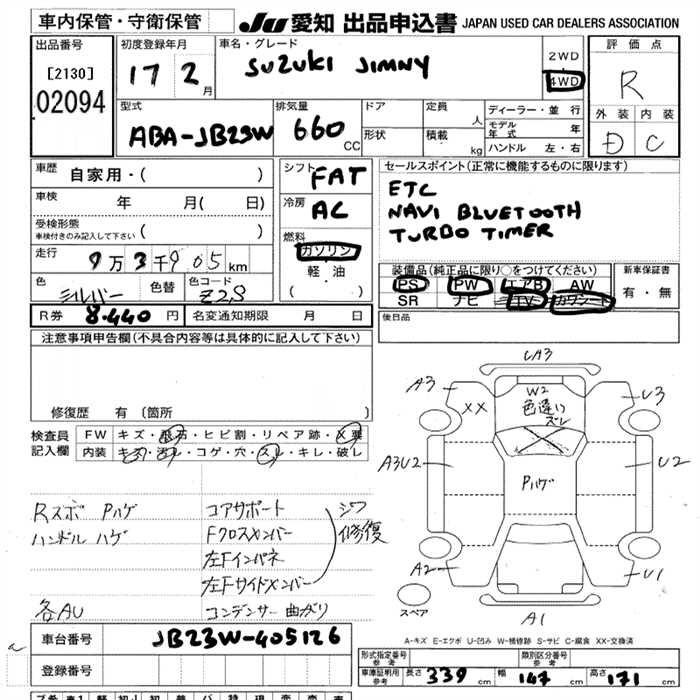 車内保管・守衛保管 JU 愛知 出品申込書 JAPAN USED CAR DEALERS ASSOCIATION
出品番号
[2130]
02094
初度登録年月
17 2 月
車名・グレード
SUZUKI JIMNY
2WD
4WD
評価点
R
外装 内装
D C
型式
ABA-JB23W
排気量
660 CC
ドア
形状
定員 人
積載 kg
ディーラー・並行
モデル年式 年
ハンドル 左・右
車歴 自家用・( )
車検 年 月( 日)
受検形態
車検付きのみ記入して下さい ( )
走行 9万3千905km
色 シルバー 色替 色コード Z2S
R券 8.440 円 名変通知期限 月 日
シフト FAT
冷房 AC
燃料
ガソリン
軽・油
( )
セールスポイント(正常に機能するものに限ります)
ETC
NAVI BLUETOOTH
TURBO TIMER
装備品(純正品に限り○をつけてください)
PS PW エアB AW
SR ナビ TV カワシート
新車保証書
有・無
後日品
注意事項申告欄(不具合内容等は具体的に記入して下さい)
修復歴 有 (箇所 )
検査員記入欄
FW キズ・飛石・ヒビ割・リペア跡・X要
内装 キズ・汚レ・コゲ・穴・スレ・キレ・破レ
Rスポ Pハゲ
ハンドル ハゲ
各AU
コアサポート
Fクロスメンバー
左Fインパネ
左Fサイドメンバー
シワ
修復
コンデンサー曲がり
UA3
A3
XX
W2
色違い
ズレ
U3
A3U2
Pハゲ
U2
A2
U1
スペア
A1
A-キズ E-エクボ U-凹み W-補修跡 S-サビ C-腐食 XX-交換済
車台番号 JB23W-405126
登録番号
形式指定番号
参考
類別区分番号
参考
車庫証明用
参考
長さ 339 cm 幅 147 cm 高さ 171 cm